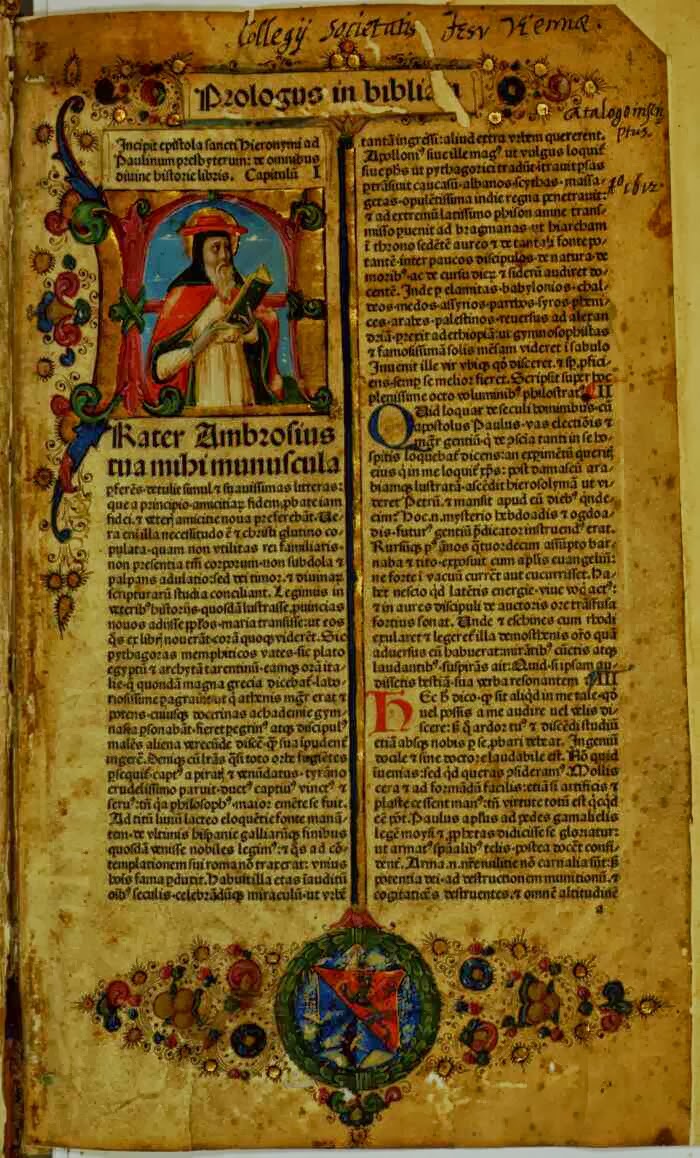 Collegij Societatis Iesv Viennæ.
Catalogo inscriptus.
Aº 1612.
Prologus in bibliam
Incipit epistola sancti Hieronymi ad
Paulinum presbyterum: de omnibus
diuine historie libris. Capitulũ I
FRater Ambrosius
tua mihi munuscula
ꝑferẽs·detulit simul ⁊ suauissimas litteras:
que a principio amicitiaꝝ fidem ꝓbate iam
fidei ⁊ veteris amicitie noua preferebãt. Ue-
ra eni illa necessitudo ẽ ⁊ christi glutino co-
pulata·quam non vtilitas rei familiaris·
non presentia tm̃ corporum·non subdola ⁊
palpans adulatio:sed dei timor·⁊ diuinaꝝ
scripturarũ studia conciliant. Legimus in
veteribꝰ historijs·quosdã lustrasse ꝓuincias
nouos adijsse pp̃los·maria transisse:ut eos
q̃s ex libris nouerãt·corã quoqꝫ viderẽt. Sic
pythagoras memphiticos vates·sic plato
egyptũ ⁊ archytã tarentinũ·eamqꝫ orã ita-
lie·q̃ quondã magna grecia dicebat·labo-
riosissime pagrauit:ut q̃ athenis mgr̃ erat ⁊
potens·cuiusqꝫ doctrinas achademie gym-
nasia ꝑsonabãt·fieret ꝑegrinꝰ atqꝫ discipulꝰ
malẽs aliena verecũde discẽ·q̃ sua ĩpudent̃
ingerẽ. Deniqꝫ cũ lr̃as q̃si toto orbe fugiẽtes
ꝑsequit̃·captꝰ a piratis ⁊ venũdatus·tyrãno
crudelissimo paruit·ductꝰ captiuꝰ vinctꝰ ⁊
seruꝰ:tñ q̃a philosophꝰ·maior emẽte se fuit.
Ad titũ liuiũ lacteo eloquẽtie fonte manã-
tem·de vltimis hispanie galliarũqꝫ finibus
quosdã venisse nobiles legimꝰ:⁊ q̃s ad cõ-
templationem sui roma nõ traxerat: vnius
hoĩs fama ꝑduxit. Habuit illa etas ĩauditũ
oĩbꝰ seculis·celebrãdũqꝫ miraculũ·ut vrbẽ
tantã ingressi:aliud extra vrbem quererent.
Apollonꝰ siue ille magꝰ ut vulgus loquit̃
siue ph̃s ut pythagorici tradũt:ĩtrauit ꝑsas
ꝑtrãsiuit caucasũ·albanos·scythas·massa-
getas·opulẽtissima indie regna penetrauit:
⁊ ad extremũ latissimo phison amne trans-
misso puenit ad bragmanas·ut hiarcham
ĩ throno sedẽtẽ aureo ⁊ de tantali fonte po-
tantẽ·inter paucos discipulos·de natura·de
moribꝰ·ac de cursu dieꝝ ⁊ siderũ audiret do-
centẽ. Inde ꝑ elamitas·babylonios·chal-
deos·medos·assyrios·parthos·syros·pheni-
ces·arabes·palestinos·reuersus ad alexan
driã·ꝑrexit ad ethiopiã:ut gymnosophistas
⁊ famosissimã solis mẽsam videret ĩ sabulo
Inuenit ille vir vbiqꝫ qð disceret·⁊ sꝑ ꝓfici-
ens·semꝑ se melior fieret. Scripsit super hoc
plenissime octo voluminibꝰ philostratꝰ. II
QUid loquar de seculi hominibus·cũ
apostolus Paulus·vas electiõis ⁊
mgr̃ gentiũ·q̃ de ꝯscia tanti in se ho-
spitis loquebat̃ dicens:an exꝑimẽtũ querit̃
eius q̃ in me loquit̃ xp̃s: post damascũ ara-
biamqꝫ lustratã·ascẽdit hierosolymã ut vi-
deret Petrũ:⁊ mansit apud eũ diebꝰ q̃nde-
cim. Hoc.n.mysterio hebdoadis ⁊ ogdoa-
dis·futurꝰ gentiũ p̃dicator instruendꝰ erat.
Rursũqꝫ pꝰ ãnos q̃tuordecim assũpto bar-
naba ⁊ tito·exposuit cum aplis euangeliũ:
ne forte ĩ vacuũ curreret aut cucurrisset. Ha-
bet nescio qd latẽtis energie·viue vocꝭ actꝰ:
⁊ in aures discipuli de auctoris ore trãsfusa
fortius sonat. Unde ⁊ eschines cum rhodi
exularet ⁊ legeret̃ illa demosthenis orõ quã
aduersus eũ habuerat:mirãtibꝰ cũctis atqꝫ
laudantibꝰ·suspirãs ait:Quid·si ipsam au-
dissetis bestiã·sua verba resonantem. III
HEc ñ dico·q̃ sit aliqd in me tale·qð
uel possis a me audire uel velis di-
scere:sꝫ q̃ ardor tuꝰ ⁊ discẽdi studiũ
etiã absqꝫ nobis ꝑ se ꝓbari debeat. Ingeniũ
docile ⁊ sine doctore laudabile est. Nõ quid
ĩuenias:sed qd queras ꝯsideramꝰ. Mollis
cera ⁊ ad formãdũ facilis:etiã si artificis ⁊
plaste cessent manꝰ:tñ virtute totũ est q̃cqd
eẽ põt. Paulus ap̃lus ad pedes gamalielis
legẽ moysi ⁊ ꝓphetas didicisse se gloriatur:
ut armatꝰ spũalibꝰ telis·postea docet̃ confi-
dent̃. Arma.n.nr̃e militie nõ carnalia sũt:sꝫ
potentia dei·ad destructionem munitionũ·⁊
cogitatiões destruentes·⁊ omnẽ altitudinẽ
a